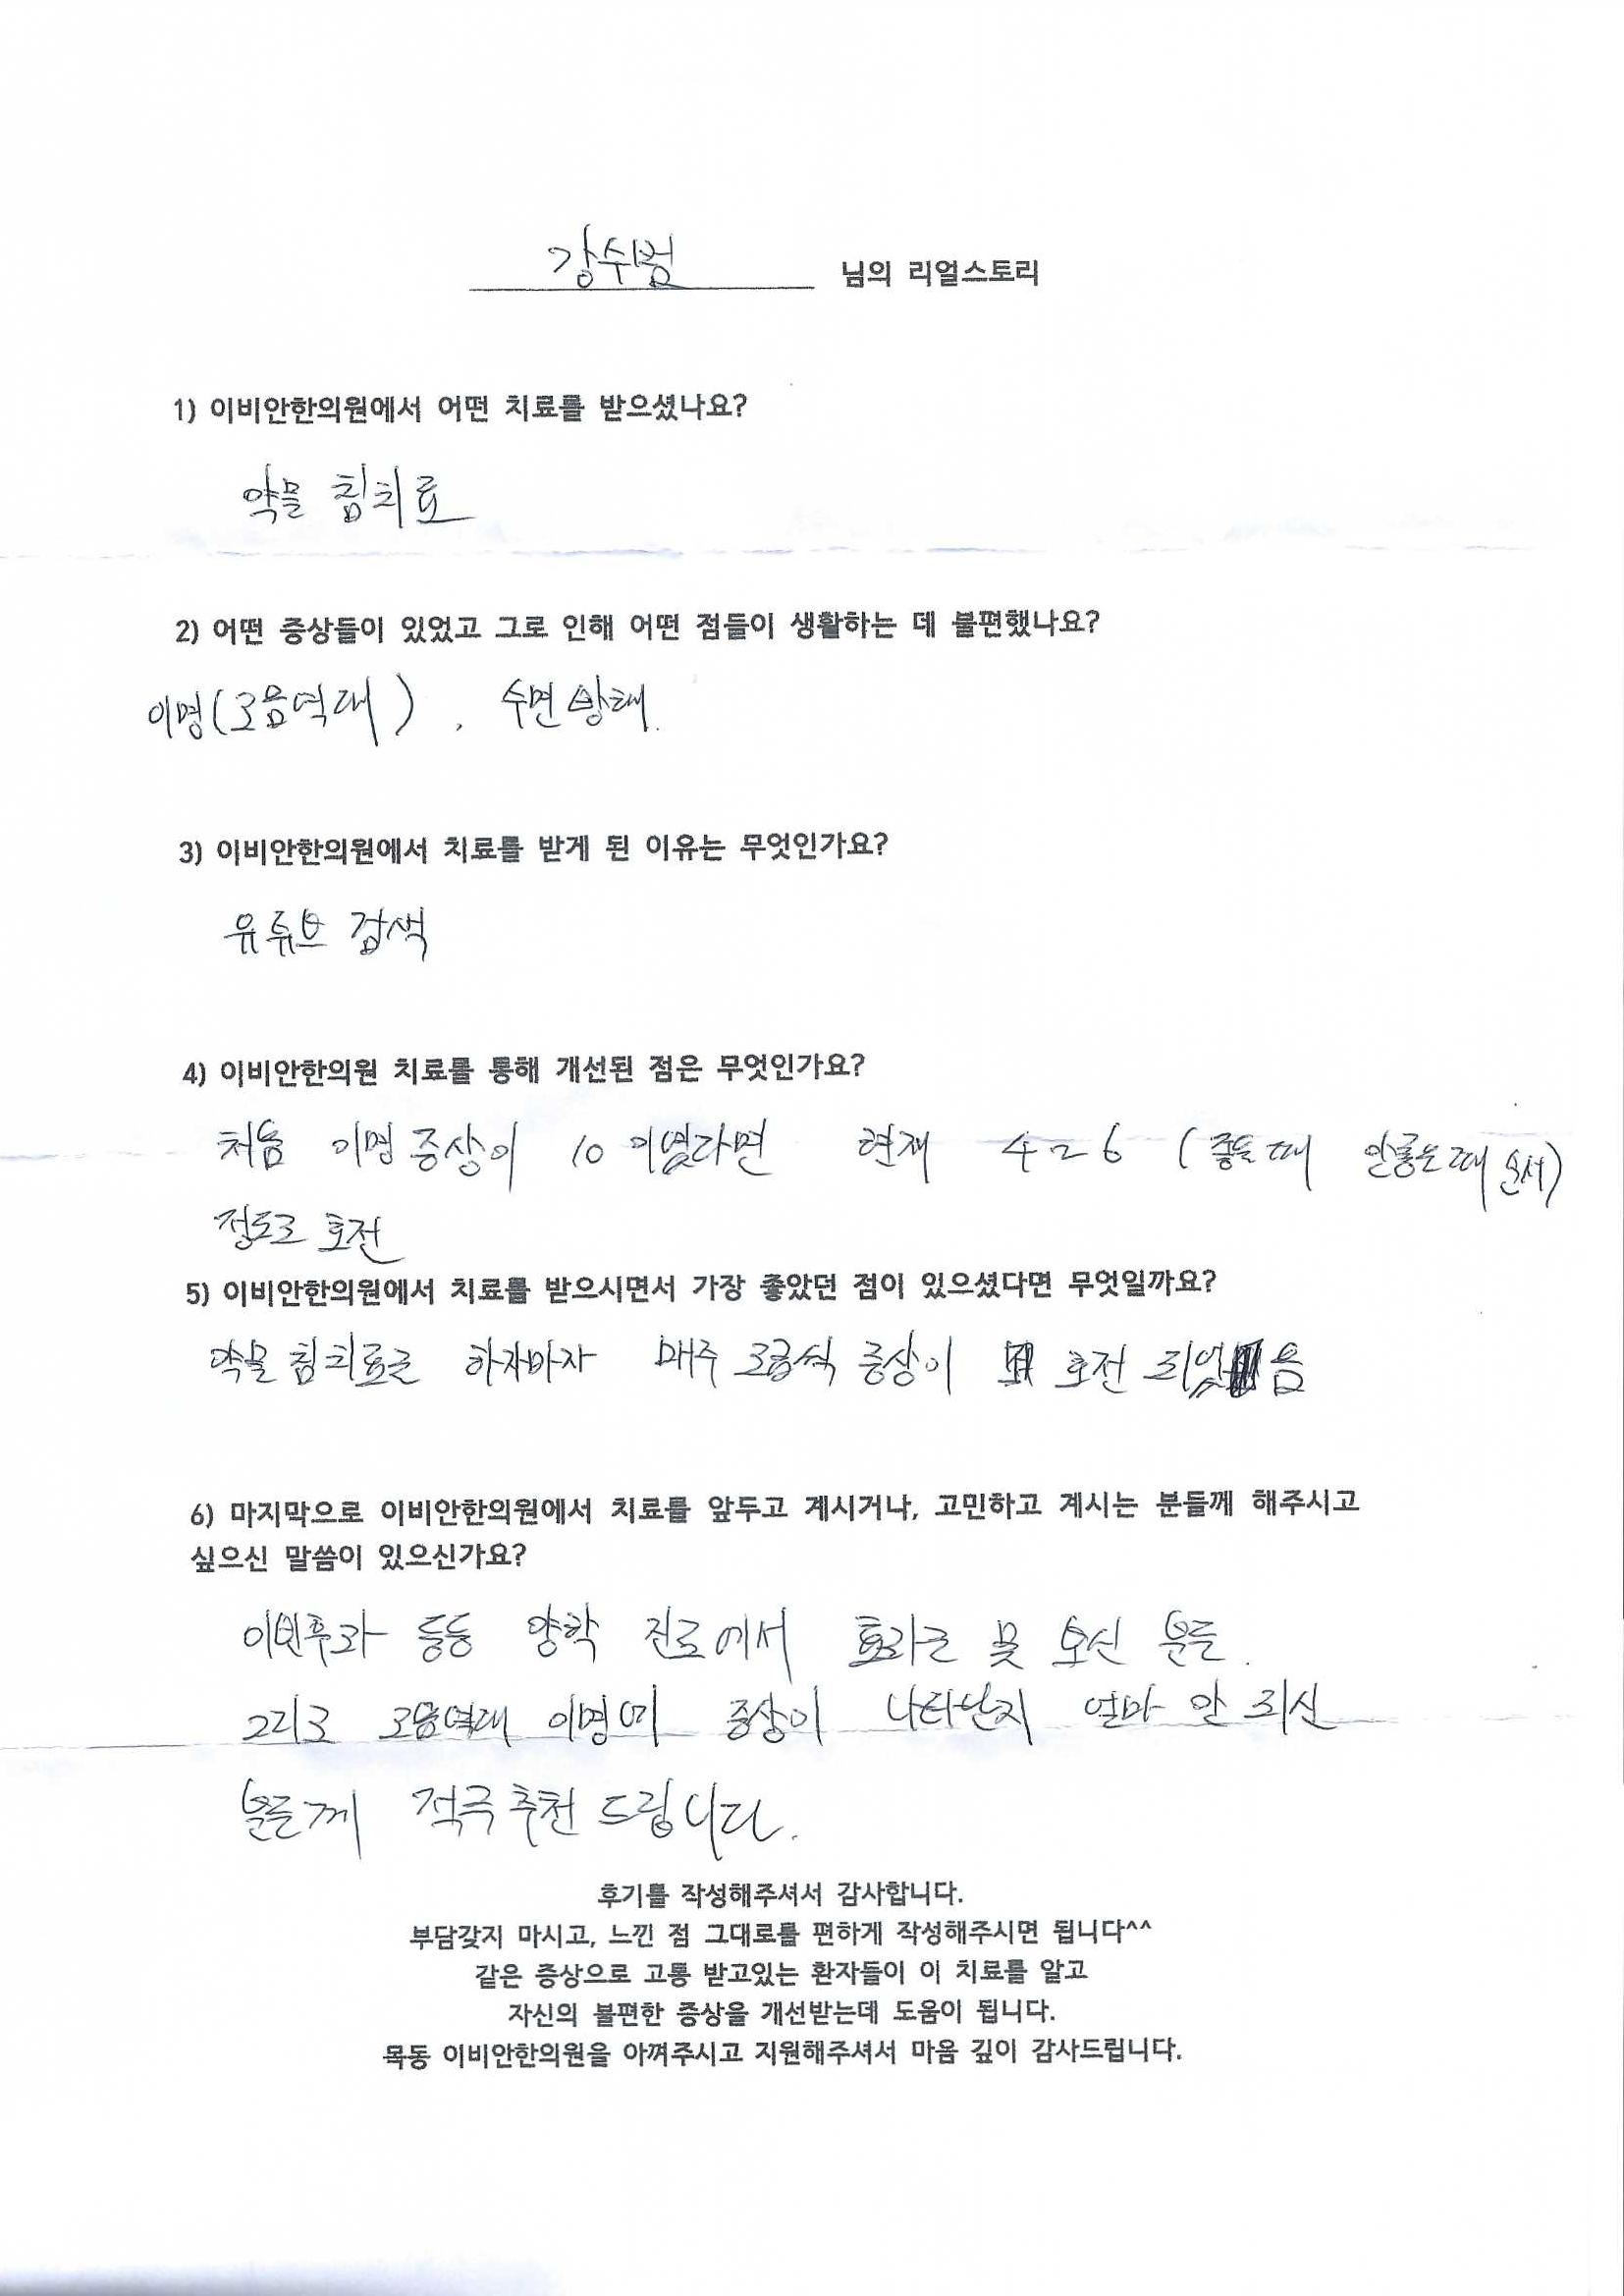 강수범 님의 리얼스토리
1) 이비안한의원에서 어떤 치료를 받으셨나요?
약물 침치료
2) 어떤 증상들이 있었고 그로 인해 어떤 점들이 생활하는 데 불편했나요?
이명(고음역대), 수면방해.
3) 이비안한의원에서 치료를 받게 된 이유는 무엇인가요?
유튜브 검색
4) 이비안한의원 치료를 통해 개선된 점은 무엇인가요?
처음 이명 증상이 10 이였다면 현재 4~6 (좋을때 안좋은때 순서)
정도로 호전
5) 이비안한의원에서 치료를 받으시면서 가장 좋았던 점이 있으셨다면 무엇일까요?
약물 침치료를 하자마자 매주 조금씩 증상이 호전 되었음
6) 마지막으로 이비안한의원에서 치료를 앞두고 계시거나, 고민하고 계시는 분들께 해주시고
싶으신 말씀이 있으신가요?
이빈후과 등등 양학 진료에서 효과를 못 보신 분들.
그리고 고음역대 이명이 증상이 나타난지 얼마 안 되신
분들께 적극추천 드립니다.
후기를 작성해주셔서 감사합니다.
부담갖지 마시고, 느낀 점 그대로를 편하게 작성해주시면 됩니다^^
같은 증상으로 고통 받고있는 환자들이 이 치료를 알고
자신의 불편한 증상을 개선받는데 도움이 됩니다.
목동 이비안한의원을 아껴주시고 지원해주셔서 마음 깊이 감사드립니다.